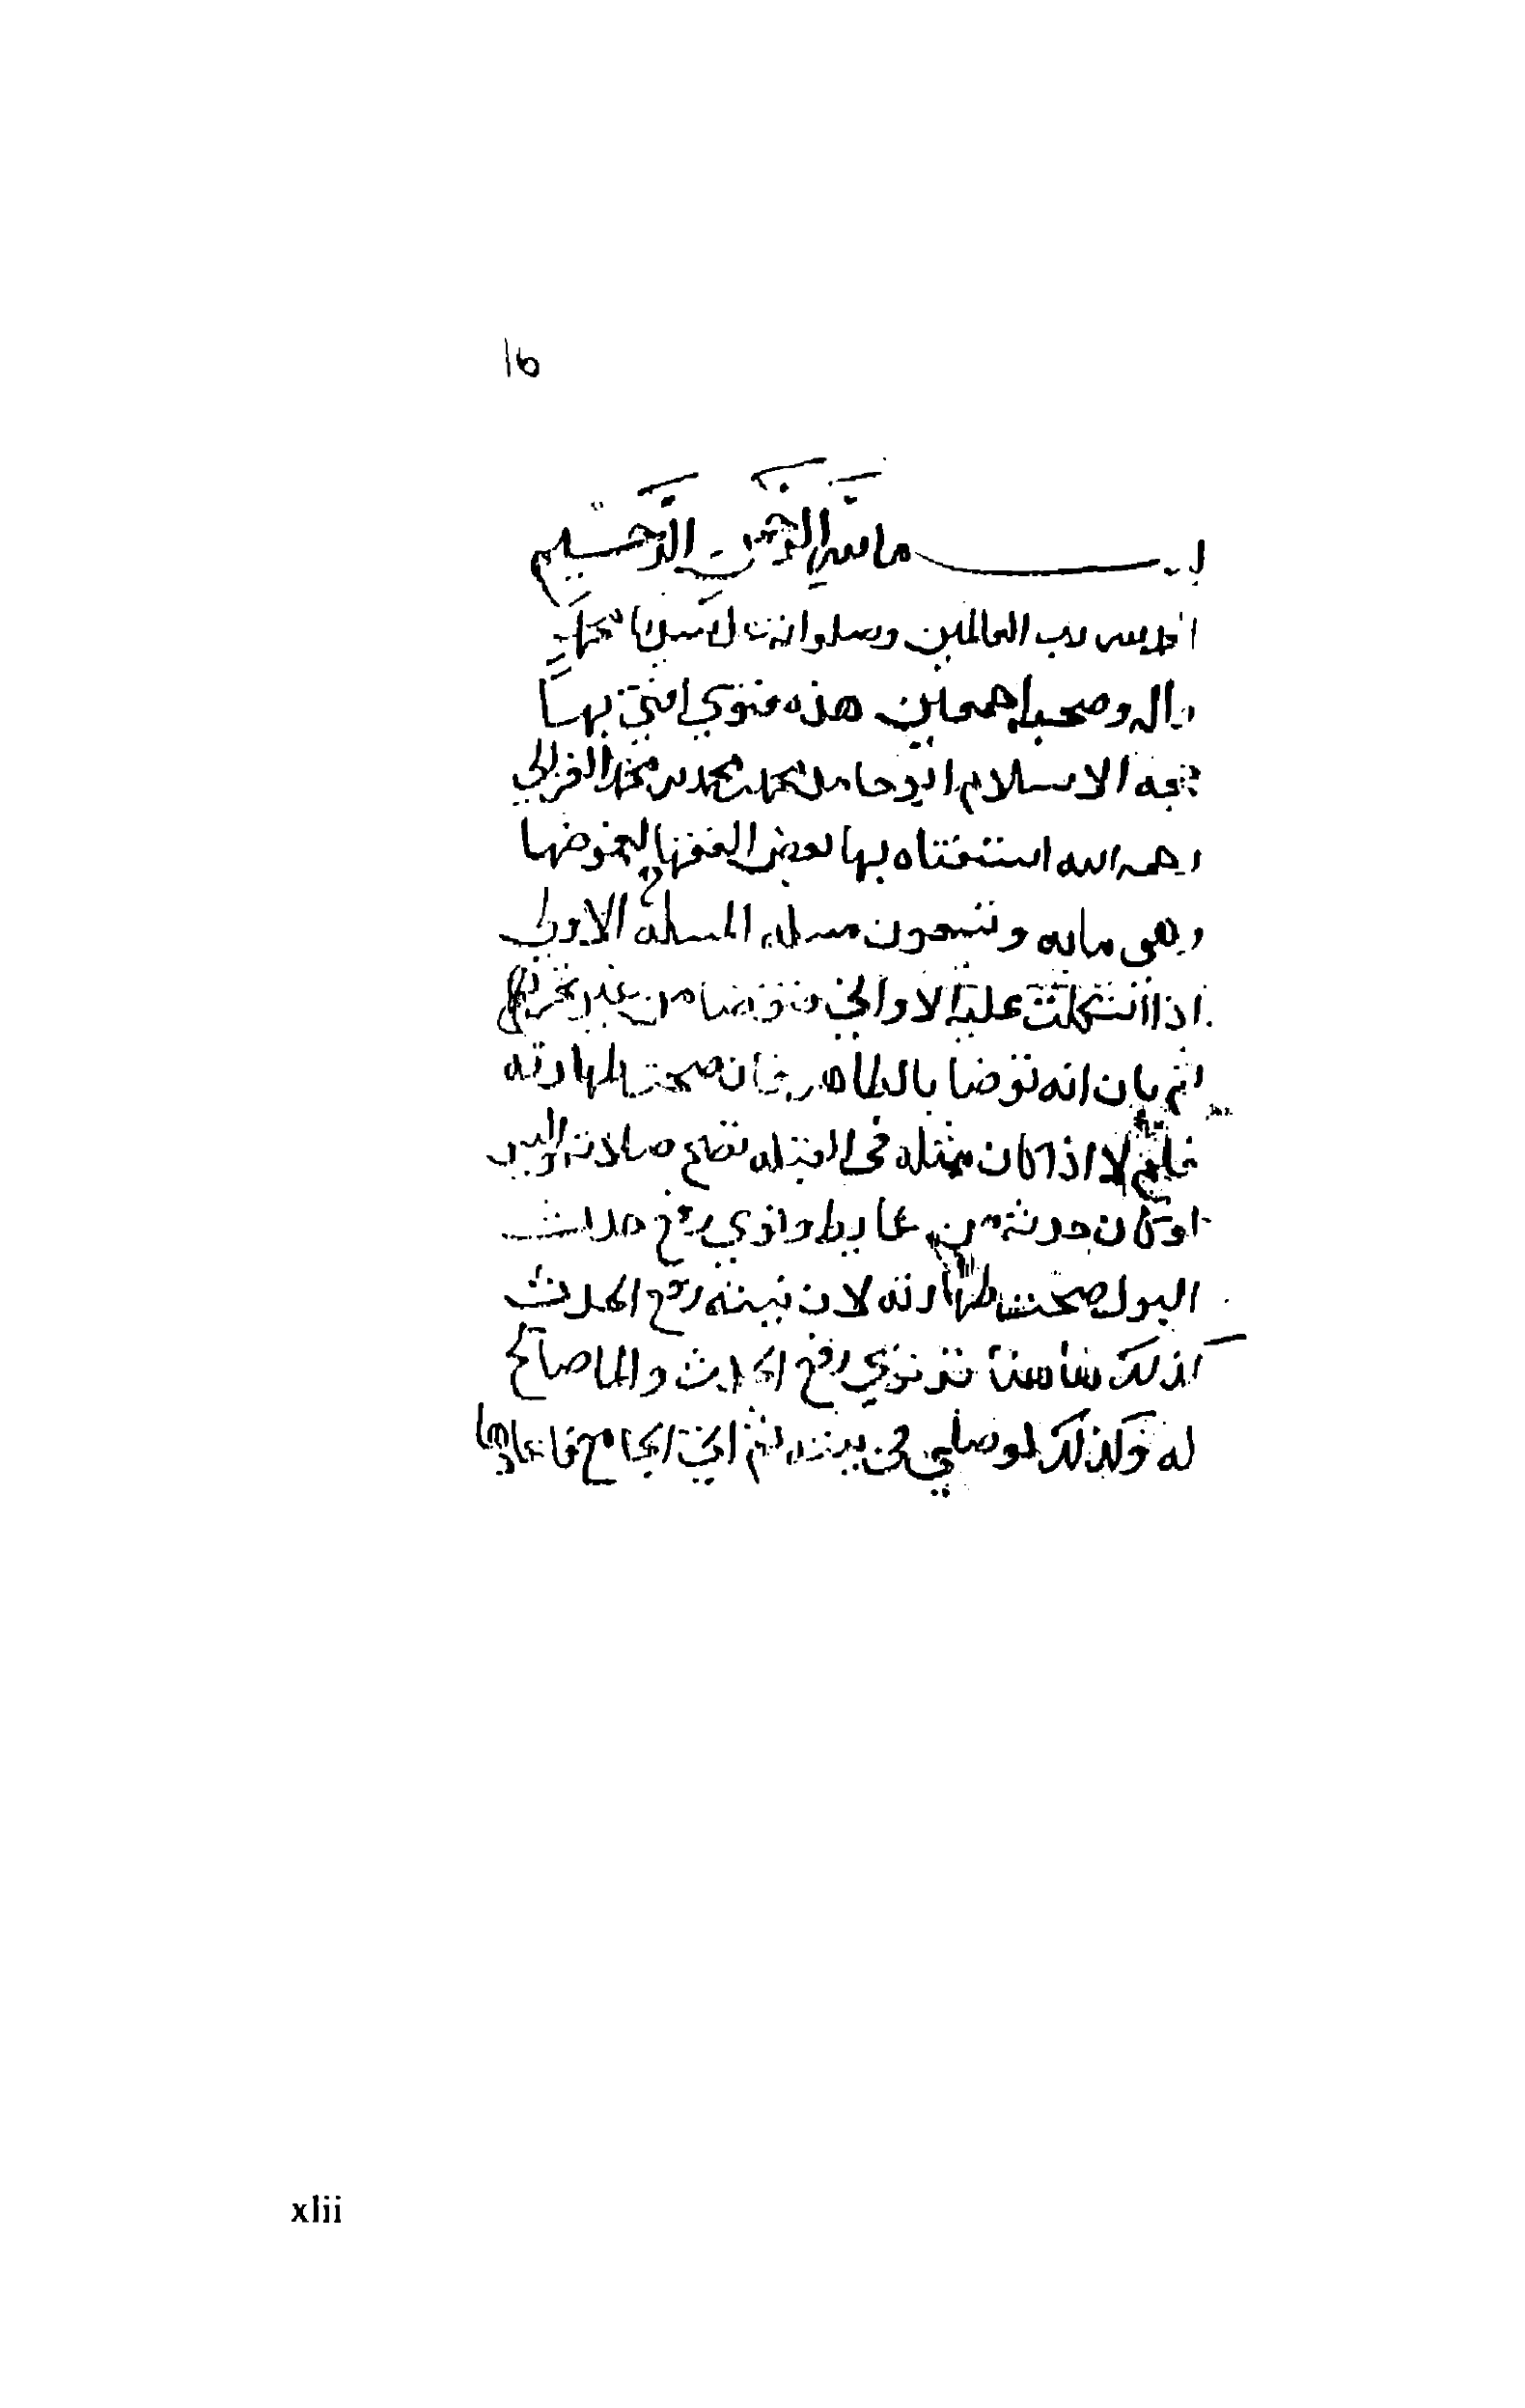 1b
بسم الله الرحمن الرحيم
الحمد لله رب العالمين وصلواته على سيدنا محمد
واله وصحبه اجمعين هذه فتوي افتي بها
حجه الاسلام ابو حامد محمد بن محمد بن محمد الغزالي
رحمه الله استفتاه بها بعض الفقها لغموضها
وهي مايه وتسعون مسله المسلة الاولي
اذا اشكلت عليه الاواني فتوضا من غير تحري
ثم بان انه توضا بالطاهر فان صحت طهارته
فلم لا اذا كان مثله في القبله تصح صلاته
او كان حدثه من غايط ونوي رفع حدث
البول صحت طهارته لان نيته رفع الحدث
كذلك هاهنا قد نوي رفع الحدث والما صالح
له وكذلك لو صلي في بيته ثم اتي الجامع فاعادها
xlii